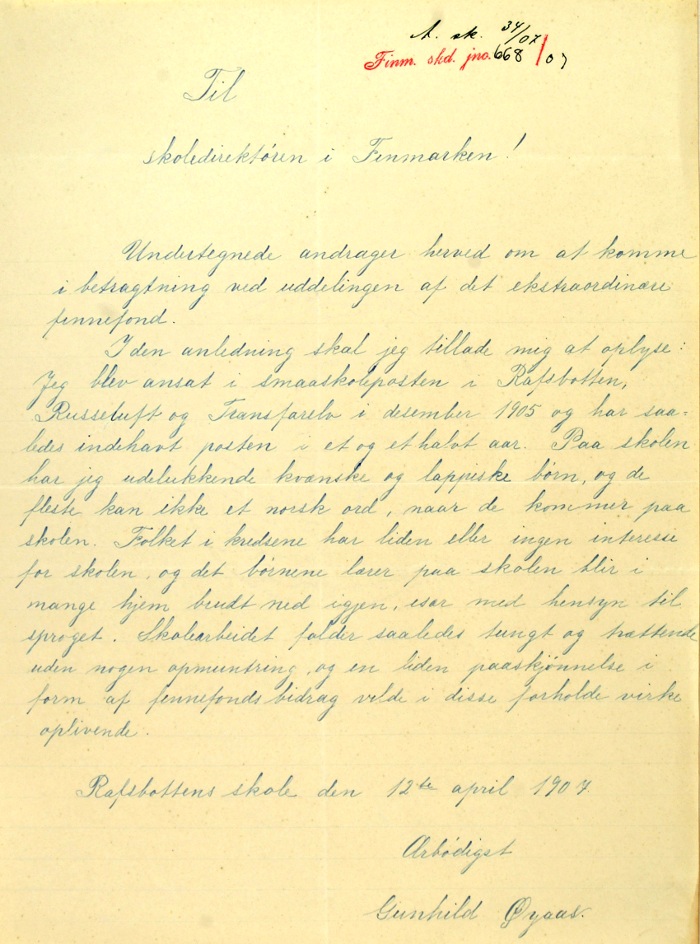 A. sk. 34/07
Finm. skd. jno. 668/07
Til
skoledirektören i Finmarken!
Undertegnede andrager herved om at komme
i betragtning ved uddelingen af det ekstraordinære
finnefond.
I den anledning skal jeg tillade mig at oplyse:
Jeg blev ansat i smaaskoleposten i Rafsbotten,
Russeluft og Transfarelv i desember 1905 og har saa-
ledes indehavt posten i et og et halvt aar. Paa skolen
har jeg udelukkende kvænske og lappiske børn, og de
fleste kan ikke et norsk ord, naar de kommer paa
skolen. Folket i kredsene har liden eller ingen interesse
for skolen, og det børnene lærer paa skolen blir i
mange hjem brudt ned igjen, især med hensyn til
sproget. Skolearbeidet falder saaledes tungt og trættende
uden nogen opmuntring, og en liden paaskjønnelse i
form af finnefondsbidrag vilde i disse forholde virke
oplivende.
Rafsbottens skole den 12te april 1907
Ærbödigst
Gunhild Øyaas.